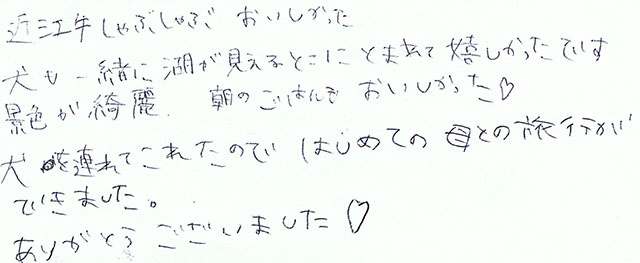 近江牛しゃぶしゃぶ おいしかった
犬も一緒に湖が見えるとこにとまれて嬉しかったです
景色が綺麗. 朝のごはんも おいしかった♡
犬を連れてこれたので はじめての母との旅行が
できました。
ありがとうございました♡